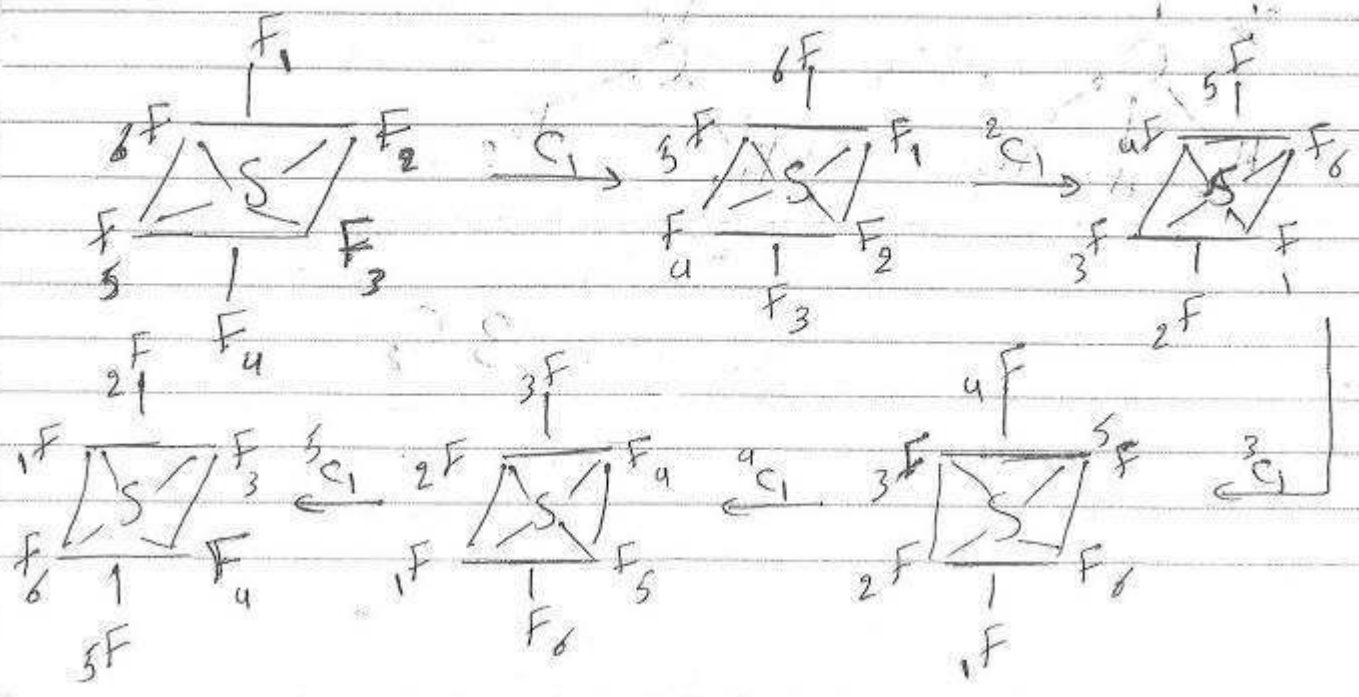 F1
6F F2
S
F5 F3
F4
C1
6F
5F F1
S
F4 F2
F3
2C1
5F
4F F6
S
3F F1
2F
3C1
4F
3F 5F
S
2F F6
1F
4C1
3F
2F F4
S
1F F5
F6
5C1
2F
1F F3
S
F6 F4
5F